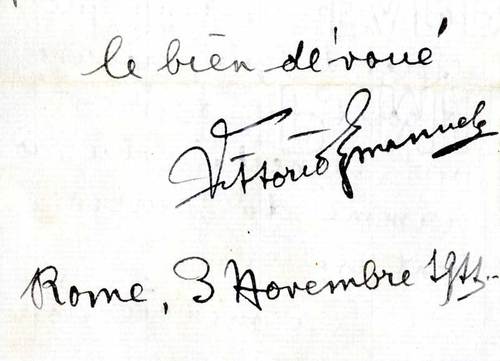 le bien dévoué
Vittorio Emanuele
Rome, 3 Novembre 1911.